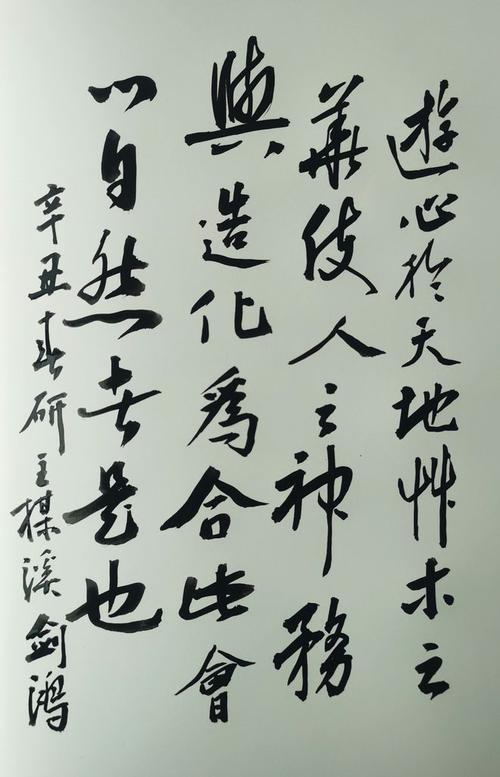 遊心於天地艸木之
華使人之神務
與造化爲合此會
以自然者是也
辛丑春研主楳溪劍鴻